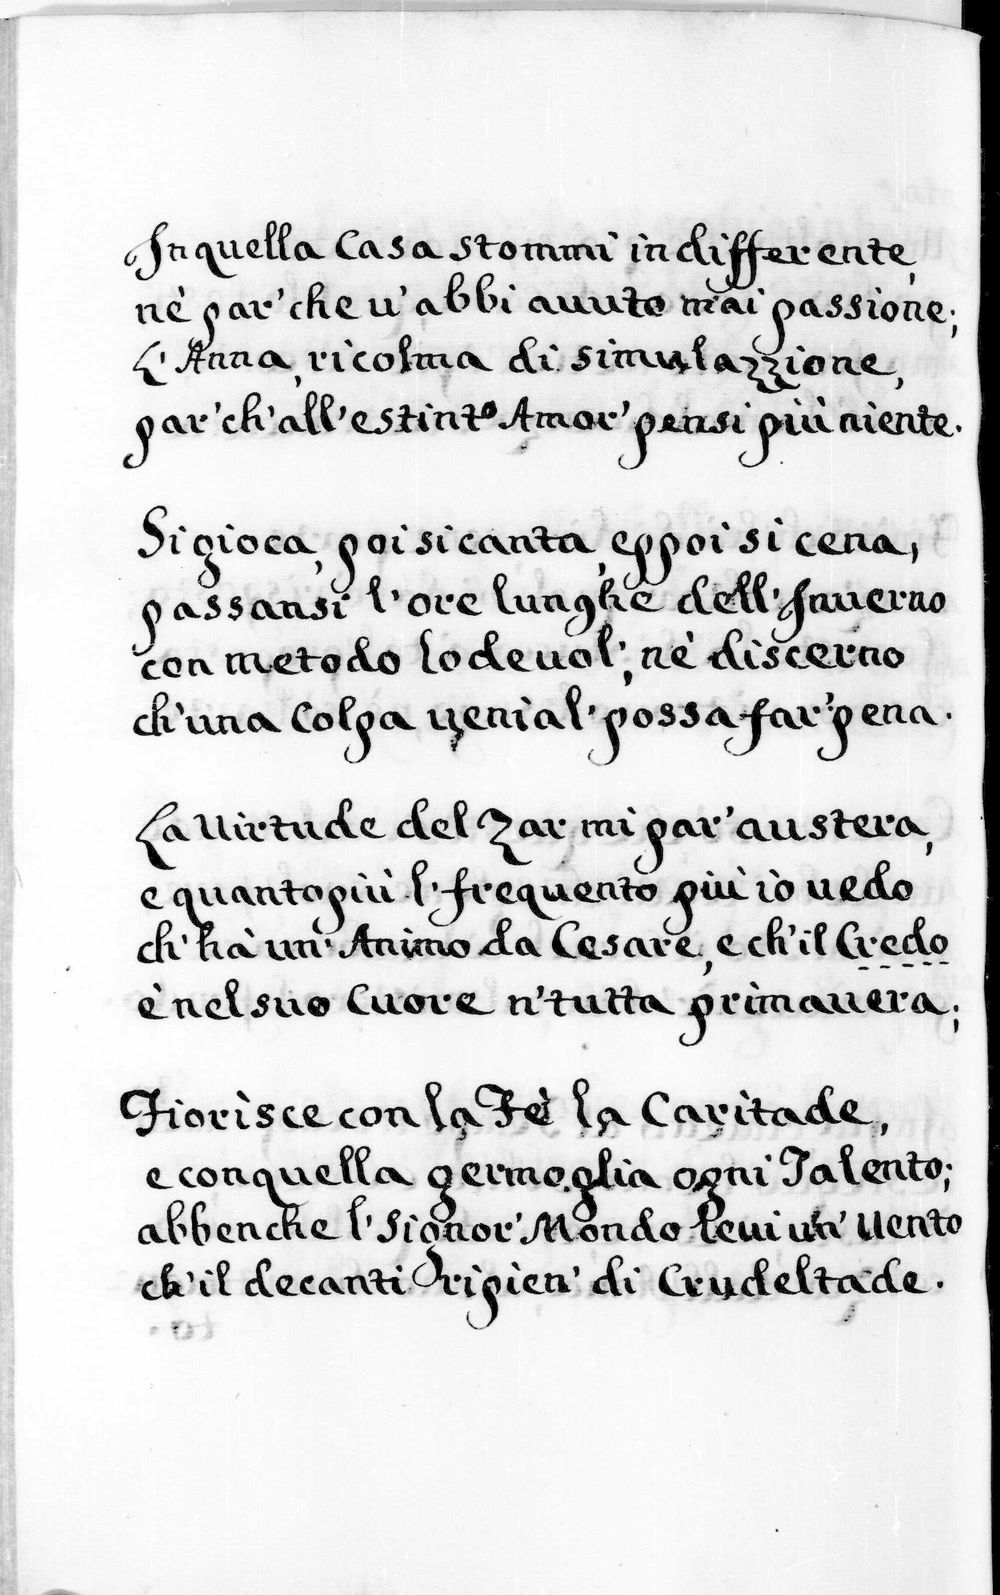 In quella Casa stommi indifferente,
nè par' che u' abbi auuto mai passione;
L' Anna, ricolma di simulazzione,
par' ch' all' estinto Amor' pensi più niente.
Si gioca, poi si canta, eppoi si cena,
passansi l' ore lunghe dell' Inuerno
con metodo lodeuol', nè discerno
ch' una Colpa uenial' possa far' pena.
La Uirtude del Zar mi par' austera,
e quanto più l' frequento più io uedo
ch' hà un' Animo da Cesare, e ch' il Credo
è nel suo Cuore n' tutta primauera;
Fiorisce con la Fè la Caritade,
e con quella germoglia ogni Talento;
abbenche l' Signor' Mondo leui un' Uento
ch' il decanti ripien' di Crudeltade.